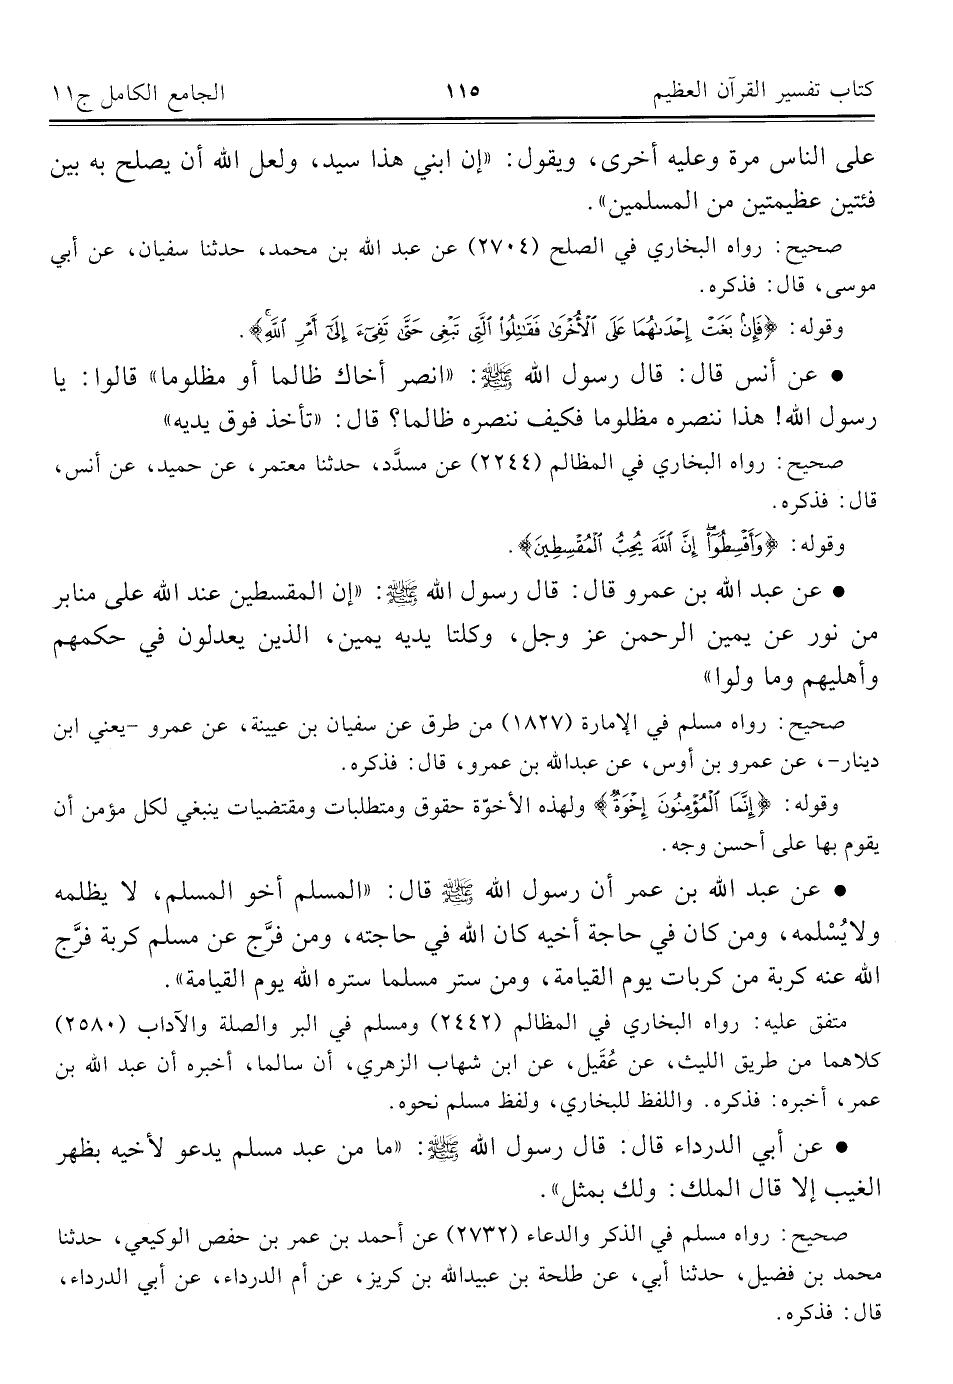 كتاب تفسير القرآن العظيم ١١٥ الجامع الكامل ج١١
على الناس مرة وعليه أخرى، ويقول: «إن ابني هذا سيد، ولعل الله أن يصلح به بين
فئتين عظيمتين من المسلمين».
صحيح: رواه البخاري في الصلح (٢٧٠٤) عن عبد الله بن محمد، حدثنا سفيان، عن أبي
موسى، قال: فذكره.
وقوله: ﴿فَإِنۢ بَغَتۡ إِحۡدَىٰهُمَا عَلَى ٱلۡأُخۡرَىٰ فَقَٰتِلُواْ ٱلَّتِي تَبۡغِي حَتَّىٰ تَفِيٓءَ إِلَىٰٓ أَمۡرِ ٱللَّهِۚ﴾.
● عن أنس قال: قال رسول الله ﷺ: «انصر أخاك ظالما أو مظلوما» قالوا: يا
رسول الله! هذا ننصره مظلوما فكيف ننصره ظالما؟ قال: «تأخذ فوق يديه»
صحيح: رواه البخاري في المظالم (٢٢٤٤) عن مسدَّد، حدثنا معتمر، عن حميد، عن أنس،
قال: فذكره.
وقوله: ﴿وَأَقۡسِطُوٓاْۖ إِنَّ ٱللَّهَ يُحِبُّ ٱلۡمُقۡسِطِينَ﴾.
● عن عبد الله بن عمرو قال: قال رسول الله ﷺ: «إن المقسطين عند الله على منابر
من نور عن يمين الرحمن عز وجل، وكلتا يديه يمين، الذين يعدلون في حكمهم
وأهليهم وما ولوا»
صحيح: رواه مسلم في الإمارة (١٨٢٧) من طرق عن سفيان بن عيينة، عن عمرو -يعني ابن
دينار-، عن عمرو بن أوس، عن عبدالله بن عمرو، قال: فذكره.
وقوله: ﴿إِنَّمَا ٱلۡمُؤۡمِنُونَ إِخۡوَةٞ﴾ ولهذه الأخوّة حقوق ومتطلبات ومقتضيات ينبغي لكل مؤمن أن
يقوم بها على أحسن وجه.
● عن عبد الله بن عمر أن رسول الله ﷺ قال: «المسلم أخو المسلم، لا يظلمه
ولايُسْلمه، ومن كان في حاجة أخيه كان الله في حاجته، ومن فرَّج عن مسلم كربة فرَّج
الله عنه كربة من كربات يوم القيامة، ومن ستر مسلما ستره الله يوم القيامة».
متفق عليه: رواه البخاري في المظالم (٢٤٤٢) ومسلم في البر والصلة والآداب (٢٥٨٠)
كلاهما من طريق الليث، عن عُقَيل، عن ابن شهاب الزهري، أن سالما، أخبره أن عبد الله بن
عمر، أخبره: فذكره. واللفظ للبخاري، ولفظ مسلم نحوه.
● عن أبي الدرداء قال: قال رسول الله ﷺ: «ما من عبد مسلم يدعو لأخيه بظهر
الغيب إلا قال الملك: ولك بمثل».
صحيح: رواه مسلم في الذكر والدعاء (٢٧٣٢) عن أحمد بن عمر بن حفص الوكيعي، حدثنا
محمد بن فضيل، حدثنا أبي، عن طلحة بن عبيدالله بن كريز، عن أم الدرداء، عن أبي الدرداء،
قال: فذكره.